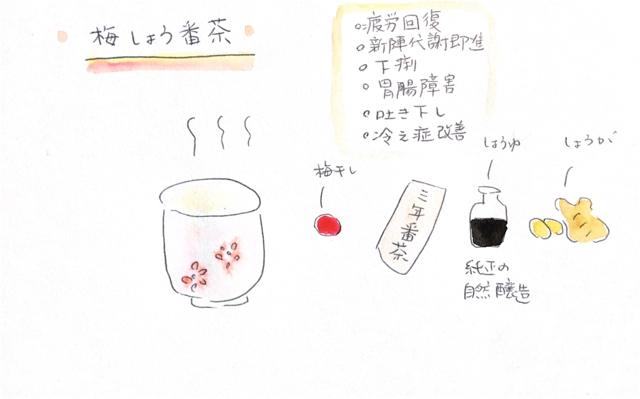 梅しょう番茶
疲労回復
新陣代謝即進
下痢
胃腸障害
吐き下し
冷え症改善
梅干し
三年番茶
しょうゆ
純正の
自然醸造
しょうが